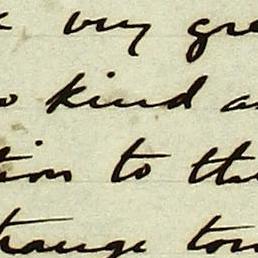 very gre
kind a
tion to the
hange tow